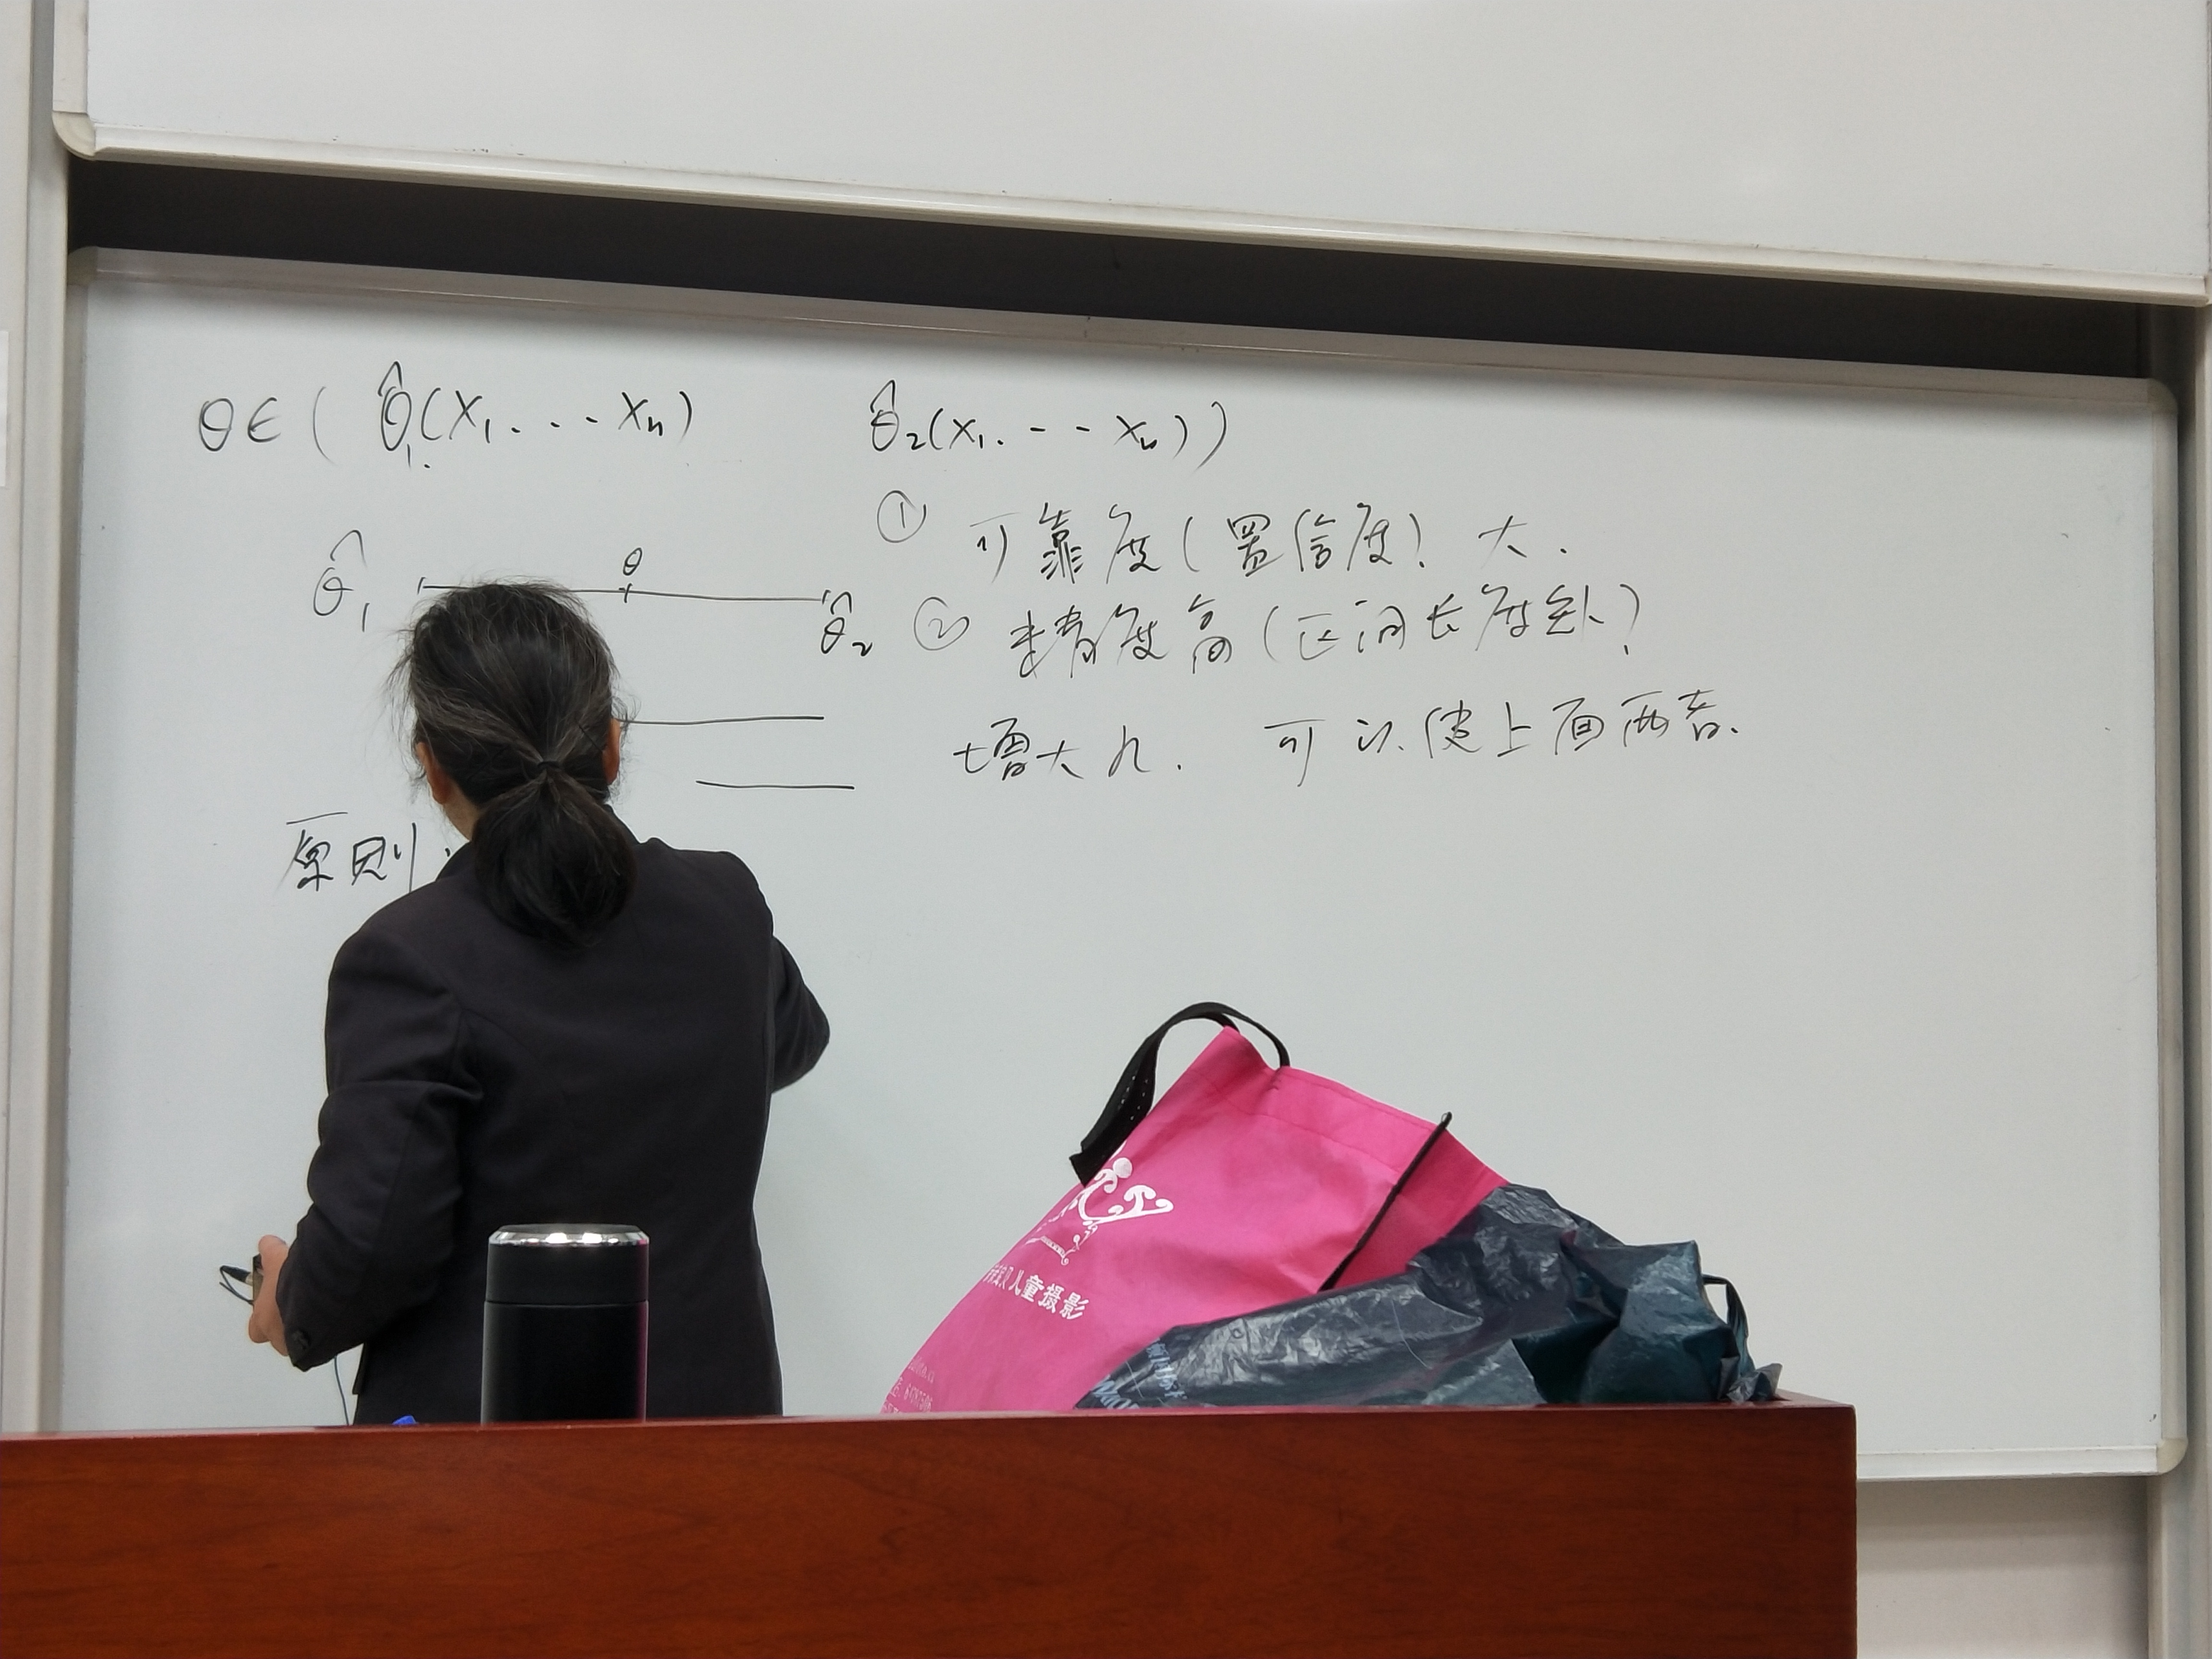 θ∈( θ̂₁(X₁...Xₙ) θ̂₂(X₁.--Xₙ))
① 可靠度(置信度)大.
θ̂₁ θ θ̂₂
② 精度高(区间长度短)
增大n. 可以使上面两者.
原则:
儿童摄影